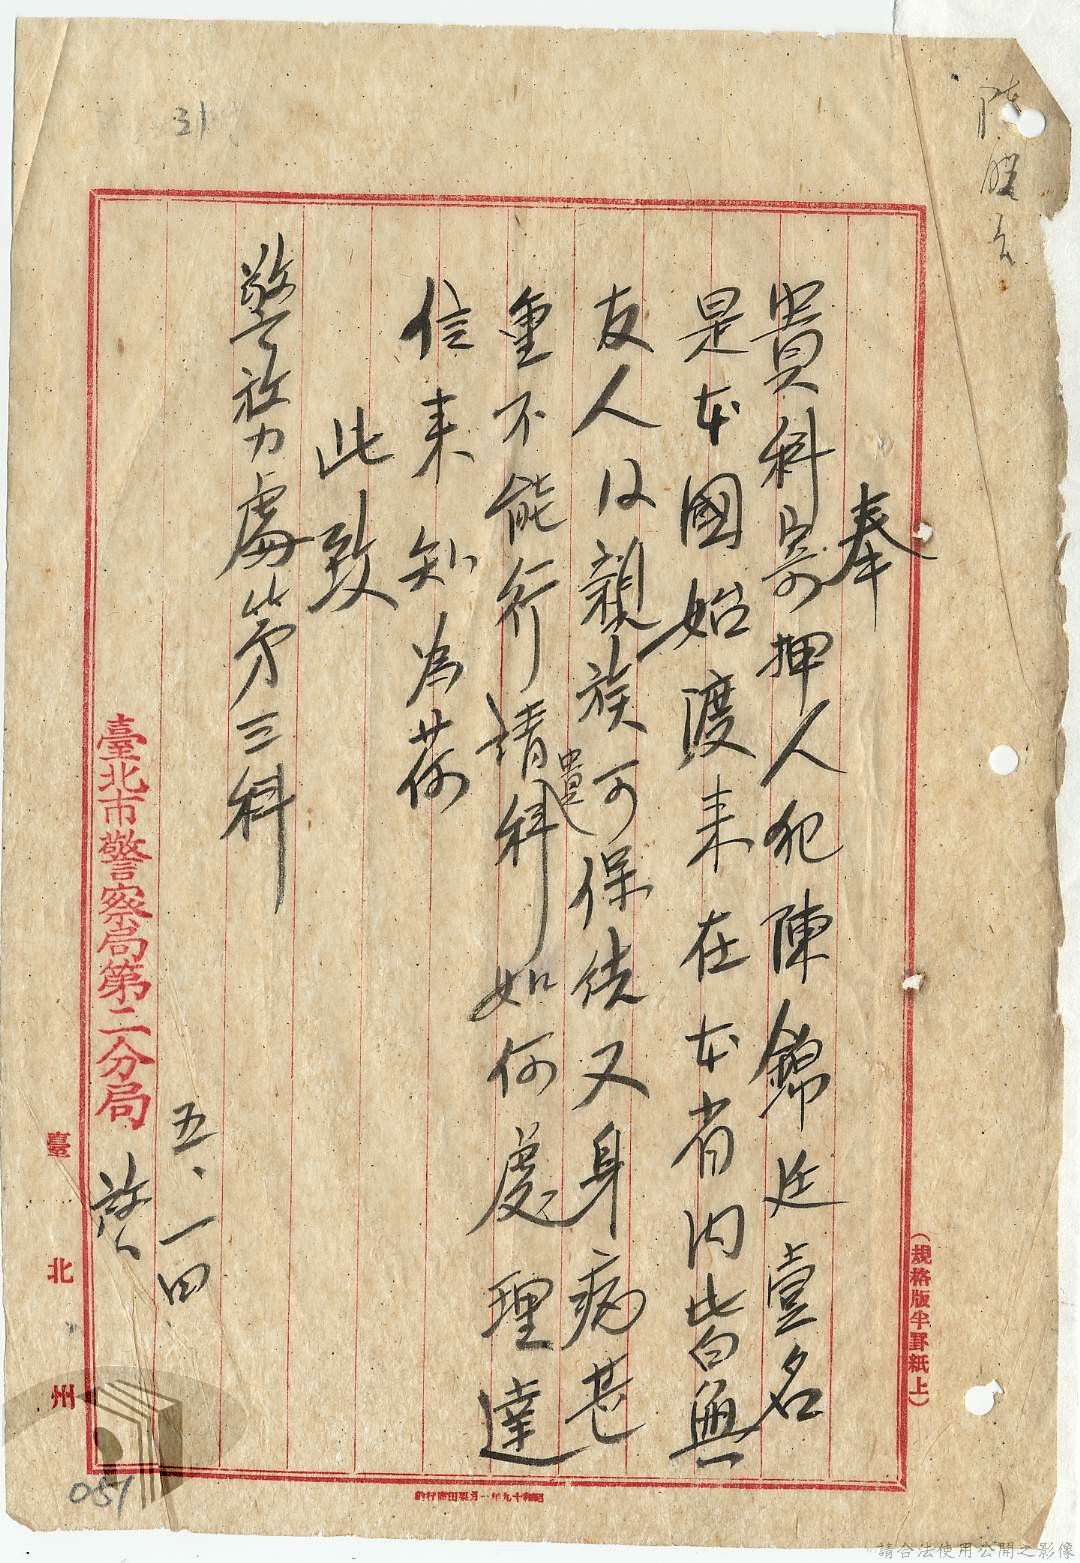 31
陳
奉
貴科寄押人犯陳錦廷壹名
是本國始渡来在本省内皆無
友人及親族可保結又身病甚
重不能行請貴科如何處理達
信来知為荷
此致
警務處第三科
五、一四
臺北市警察局第二分局 啓
臺北州
(規格版半罫紙上)
051
請合法使用公開之影像